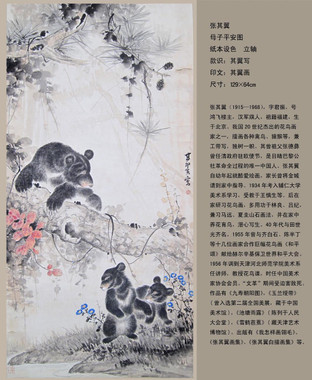 张其翼
母子平安图
纸本设色 立轴
款识：其翼写
印文：其翼画
尺寸：129×64cm
张其翼（1915—1968），字君振，号
鸿飞楼主，汉军旗人，祖籍福建，生
于北京，我国20世纪杰出的花鸟画
家之一，描画各种禽鸟、猿猴等，兼
工带写，独树一帜。其曾祖父张德彝
曾任清政府驻欧使节，是目睹巴黎公
社革命全过程的唯一中国人。张其翼
自幼年起就酷爱绘画，家长曾将金城
请到家中指导，1934年考入辅仁大学
美术系学习，受教于王慎生等，后在
家研习花鸟画，多用功于林良、吕纪，
兼习马远、夏圭山石画法，并在家中
养花育鸟，潜心写生。40年代与田世
光齐名。1955年曾与齐白石、陈半丁
等十几位画家合作巨幅花鸟画《和平
颂》献给赫尔辛基保卫世界和平大会。
1956年调到天津河北师范学院美术系
任讲师，教授花鸟课，时任中国美术
家协会会员。"文革"期间受迫害致死。
作品有《九寿朝阳图》、《玉兰绶带》
（曾入选第二届全国美展，藏于中国
美术馆）、《池塘雨露》（陈列于人民
大会堂）、《雪鹤苍鹭》（藏天津艺术
博物馆），出版有《我怎样画翎毛》、
《张其翼画集》、《张其翼白描画集》等。